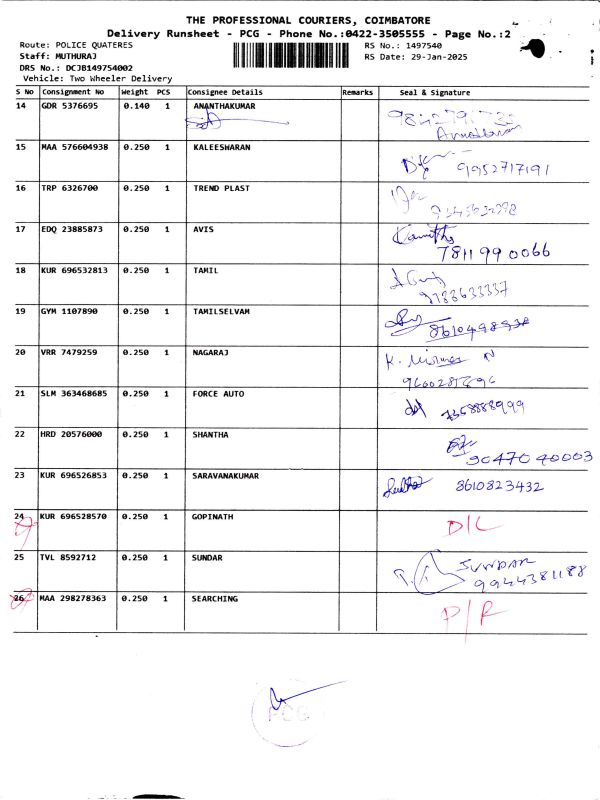 THE PROFESSIONAL COURIERS, COIMBATORE
Delivery Runsheet - PCG - Phone No.:0422-3505555 - Page No.:2
Route: POLICE QUATERES RS No.: 1497540
Staff: MUTHURAJ RS Date: 29-Jan-2025
DRS No.: DCJB149754002
Vehicle: Two Wheeler Delivery
S No Consignment No Weight PCS Consignee Details Remarks Seal & Signature
14 GDR 5376695 0.140 1 ANANTHAKUMAR
15 MAA 576604938 0.250 1 KALEESHARAN
9952717191
16 TRP 6326700 0.250 1 TREND PLAST
17 EDQ 23885873 0.250 1 AVIS
7811990066
18 KUR 696532813 0.250 1 TAMIL
19 GYM 1107890 0.250 1 TAMILSELVAM
20 VRR 7479259 0.250 1 NAGARAJ
21 SLM 363468685 0.250 1 FORCE AUTO
7358888999
22 HRD 20576000 0.250 1 SHANTHA
9047040003
23 KUR 696526853 0.250 1 SARAVANAKUMAR 8610823432
24 KUR 696528570 0.250 1 GOPINATH D/L
25 TVL 8592712 0.250 1 SUNDAR SUNDAR
9944381188
26 MAA 298278363 0.250 1 SEARCHING P/R
PCG